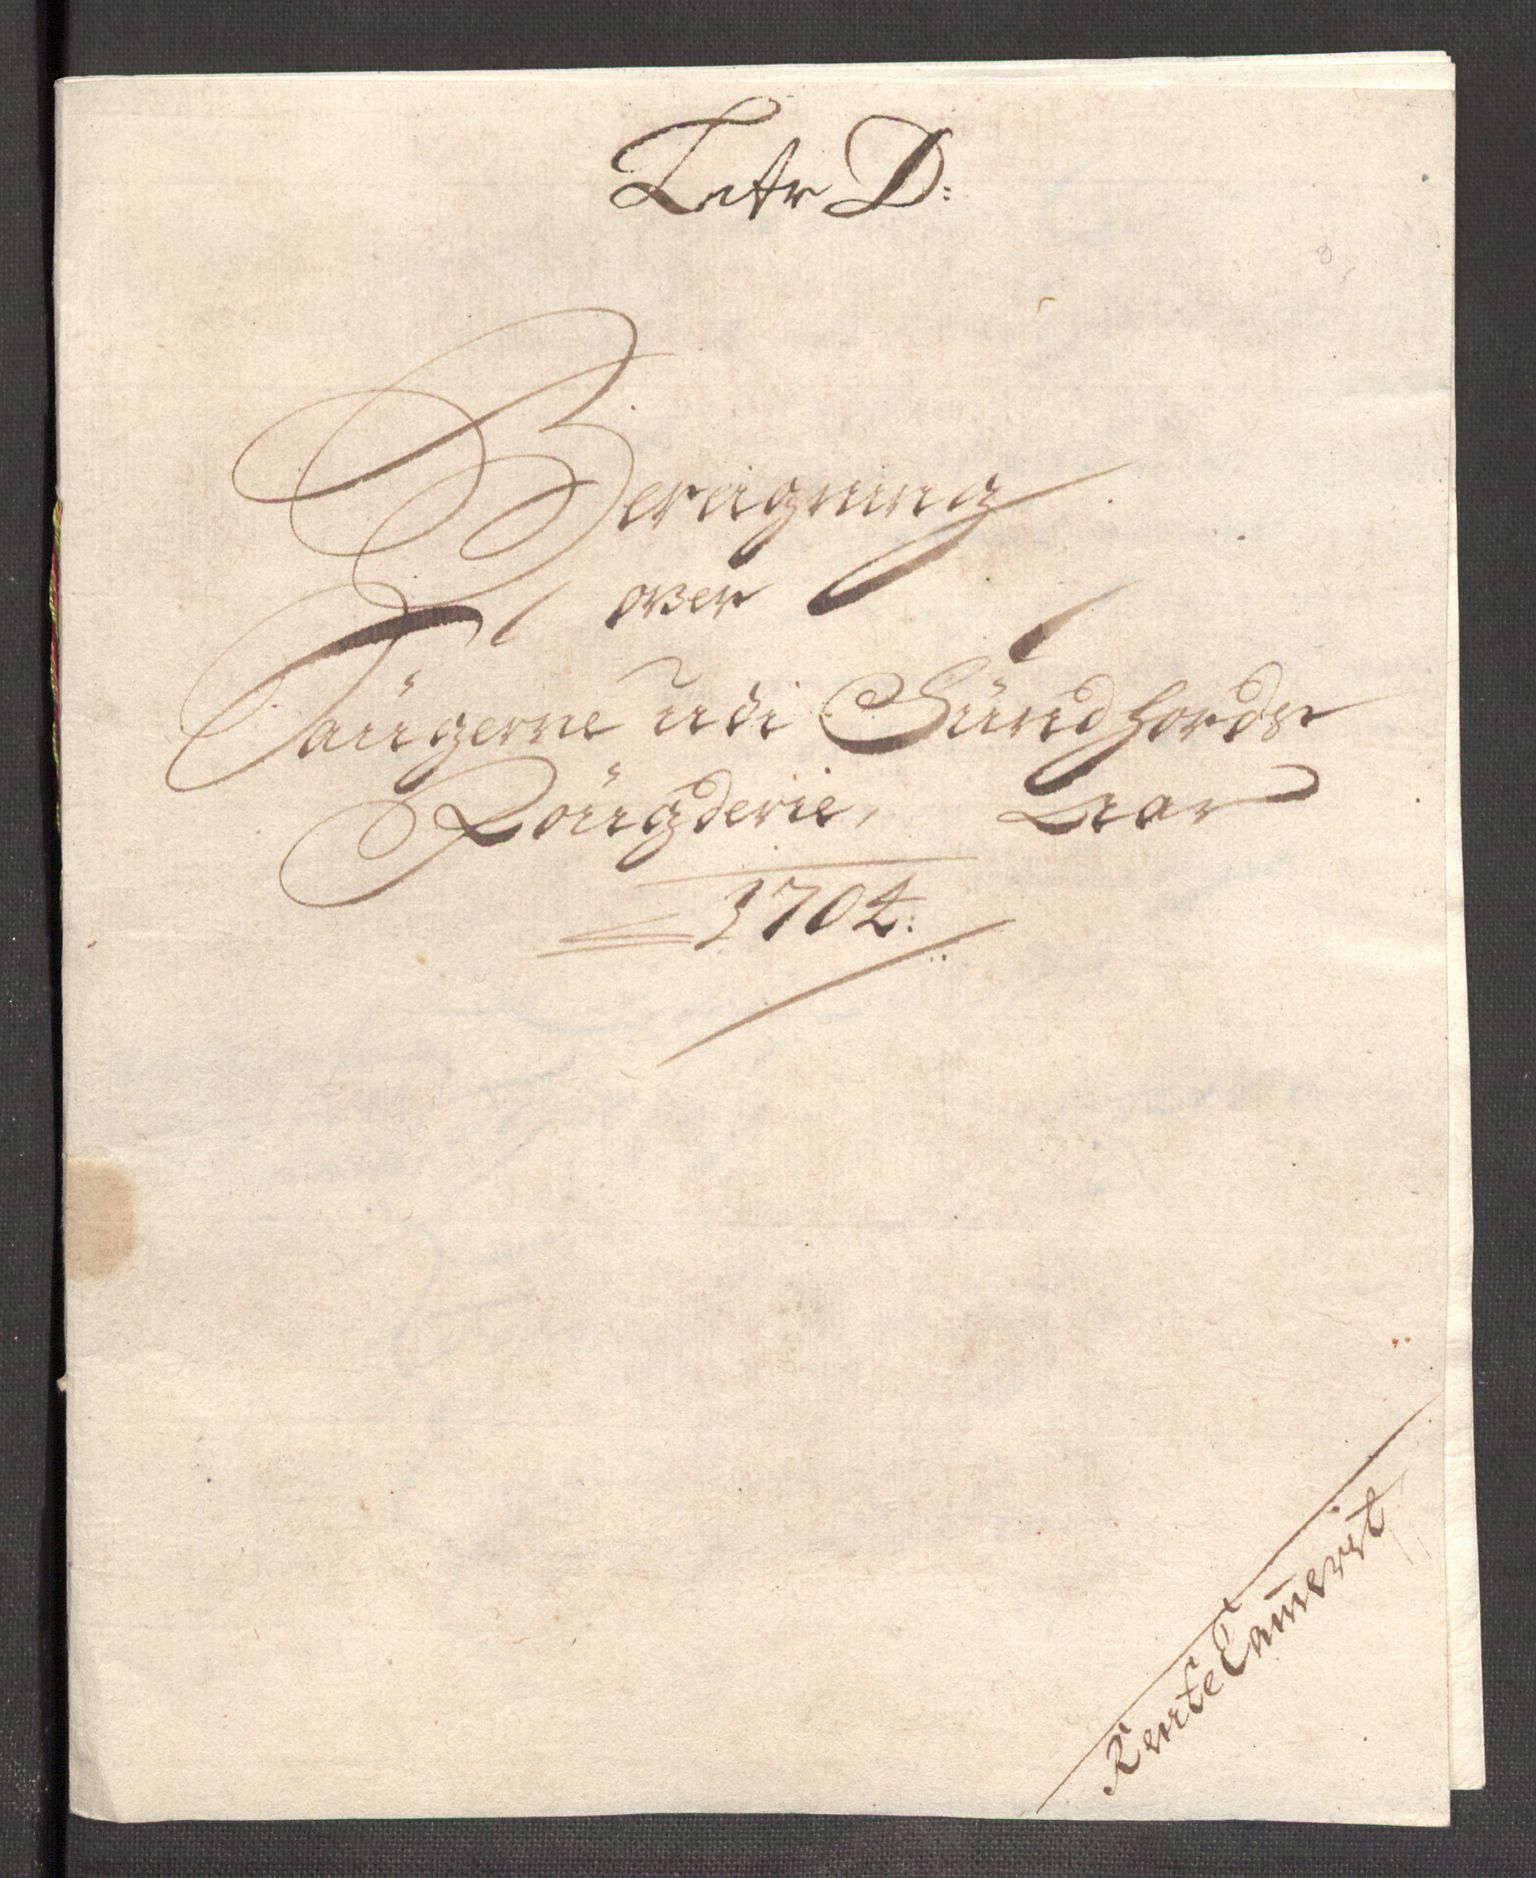 Letr D:
Beregning
over
Saugerne udi Sundhords
Fougderie, Aar
1704:
RenteCam̄erit